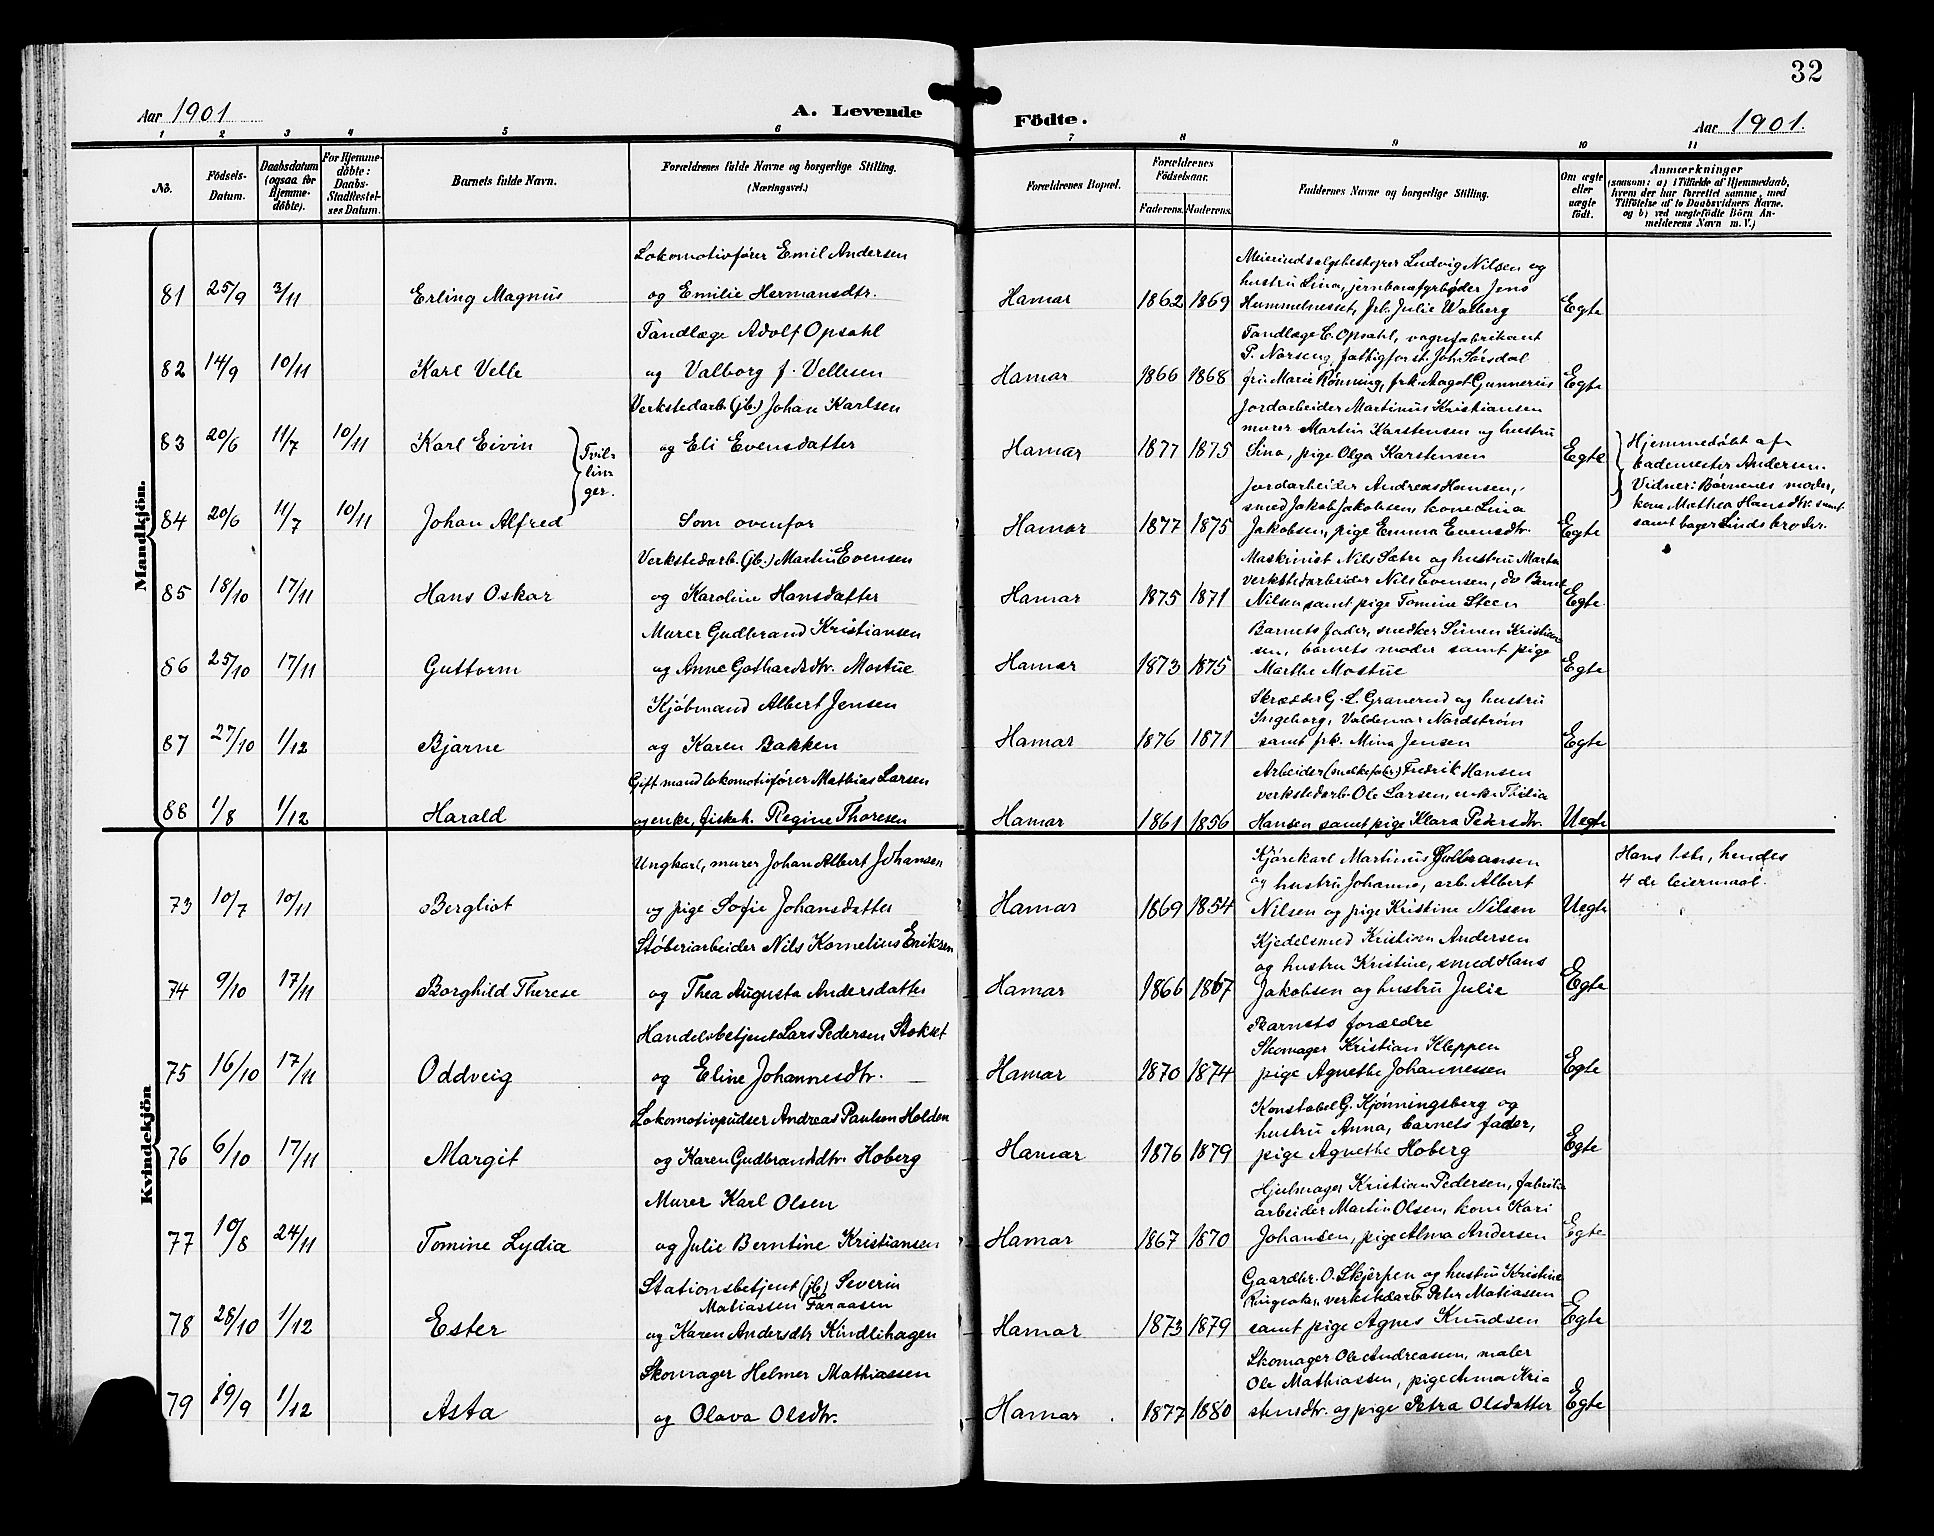 32
Aar 1901 A. Levende Födte. Aar 1901.
1 2 3 4 5 6 7 8 9 10 11
No. Födsels-Datum. Daabsdatum (ogsaa for Hjemme-döbte). For Hjemme-döbte: Daabs-Stadfæstel-ses Datum. Barnets fulde Navn. Forældrenes fulde Navne og borgerlige Stilling. (Næringsvei.) Forældrenes Bopæl. Forældrenes Födselsaar. Faderens. Moderens. Faddernes Navne og borgerlige Stilling. Om ægte eller uægte födt. Anmærkninger (saasom: a) i Tilfælde af Hjemmedaab, hvem der har forrettet samme, med Tilföielse af to Daabsvidners Navne, og b) ved uægtefödte Börn An-melderens Navn m. V.)
Mandkjön.
Lokomotivfører Emil Andersen Meieriudsalgsbestyrer Ludvig Nilsen og
hustru Lina, jernbanefyrbøder Jens
81 25/9 3/11 Erling Magnus og Emilie Hermansdtr. Hamar 1862 1869 Hummelnesset, frk. Julie Walberg Egte
Tandlæge Adolf Opsahl Tandlæge C. Opsahl, vognfabrikant
P. Norseng, fattigforst. Joh. Sørsdal
82 14/9 10/11 Karl Velle og Valborg f. Vellesen Hamar 1866 1868 fru Marie Rønning, frk. Aagot Gunnerius Egte
Verkstedarb. (jb.) Johan Karlsen Jordarbeider Martinus Kristiansen
murer Martin Karstensen og hustru
83 20/6 11/7 10/11 Karl Eivin og Eli Evensdatter Hamar 1877 1875 Sina, pige Olga Karstensen Egte
Tvil-lin-ger.
Hjemmedøbt af
bademester Andersen.
Vidner: Barnenes moder,
kone Mathea Hansdtr. samt
samt bager Lindsbroder.
Jordarbeider Andreas Hansen,
smed Jakob Jakobsen, kone Lina
84 20/6 11/7 10/11 Johan Alfred Som ovenfor Hamar 1877 1875 Jakobsen, pige Emma Evensdtr. Egte
Verkstedarb. (jb.) Martin Evensen Maskinist Nils Sætre og hustru Marte
verkstedarbeider Nils Evensen, do Bernt
85 18/10 17/11 Hans Oskar og Karoline Hansdatter Hamar 1875 1871 Nilsen samt pige Tomine Steen Egte
Murer Gudbrand Kristiansen Barnets fader, snedker Simen Kristian
sen, barnets moder samt pige
86 25/10 17/11 Guttorm og Anne Gothardsdtr. Mostue Hamar 1873 1875 Marthe Mostue Egte
Kjøbmand Albert Jensen Skrædder G. L. Granerud og hustru
Ingeborg, Valdemar Nordstrøm
87 27/10 1/12 Bjarne og Karen Bakken Hamar 1876 1871 samt frk. Mina Jensen Egte
Gift mand lokomotivfører Mathias Larsen Arbeider (snekkefabr.) Fredrik Hansen
verkstedarb. Ole Larsen, enke Thilia
88 1/8 1/12 Harald og enke, fiskeh. Regine Thoresen Hamar 1861 1856 Hansen samt pige Klara Pedersdtr. Uegte
Kvindekjön
Ungkarl, murer Johan Albert Johansen Kjørekarl Martinus Gulbransen Hans 1ste, hendes
og hustru Johanne, arb. Albert 4de leiermaal.
73 10/7 10/11 Bergliot og pige Sofie Johansdatter Hamar 1869 1854 Nilsen og pige Kristine Nilsen Uegte
Støberiarbeider Nils Kornelius Eriksen Kjedelsmed Kristian Andersen
og hustru Kristine, smed Hans
74 9/10 17/11 Borghild Therese og Thea Augusta Andersdatter Hamar 1866 1867 Jakobsen og hustru Julie Egte
Handelsbetjent Lars Pedersen Stokset Barnets forældre
Skomager Kristian Kleppen
75 16/10 17/11 Oddveig og Eline Johannesdtr. Hamar 1870 1874 pige Agnethe Johannessen Egte
Lokomotivpudser Andreas Paulsen Holden Konstabel G. Kjønningsberg og
hustru Anna, barnets fader,
76 6/10 17/11 Margit og Karen Gudbrandsdtr. Hoberg Hamar 1876 1879 pige Agnethe Hoberg Egte
Murer Karl Olsen Hjulmager Kristian Pedersen, fabrik
arbeider Martin Olsen, kone Kari
77 10/8 24/11 Tomine Lydia og Julie Berntine Kristiansen Hamar 1867 1870 Johansen, pige Alma Andersen Egte
Stationsbetjent (jb) Severin Gaardbr. O. Skjerpen og hustru Kristine
Matiassen Faraasen Ringsaker, verkstedarb. Peter Matiassen
78 28/10 1/12 Ester og Karen Andersdtr Kindlihagen Hamar 1873 1879 samt pige Agnes Knudsen Egte
Skomager Helmer Mathiassen Skomager Ole Andreassen, maler
Ole Mathiassen, pige Anna Kri
79 19/9 1/12 Asta og Olava Olsdtr. Hamar 1877 1880 stensdtr. og pige Petra Olsdatter Egte